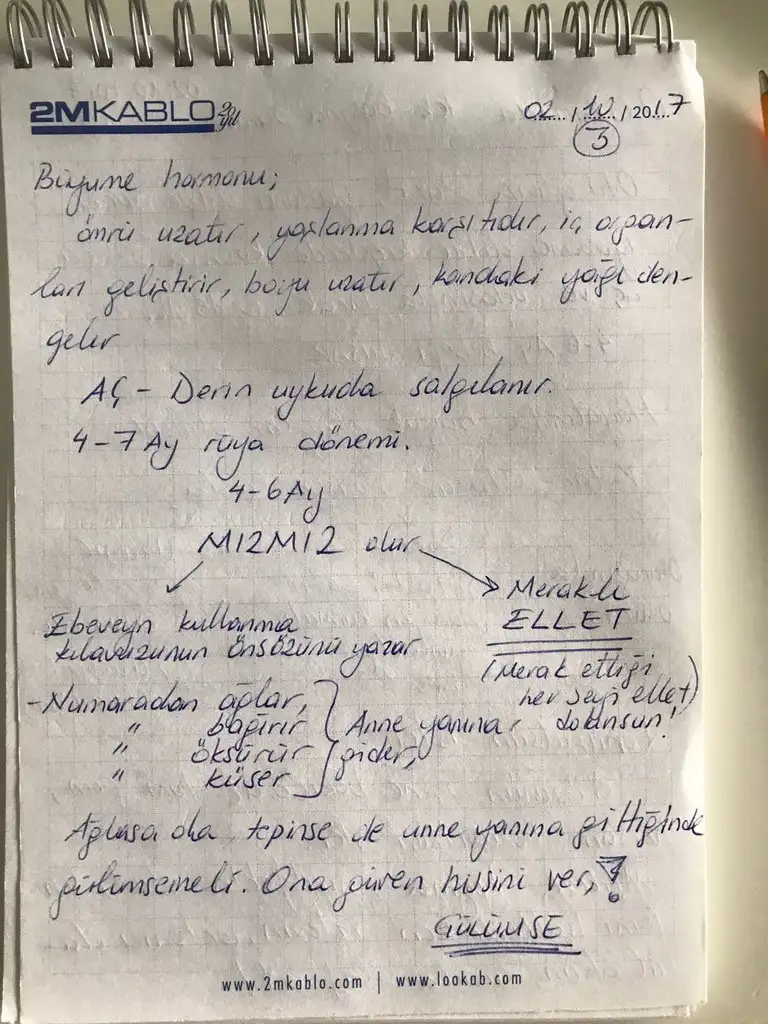 2MKABLO 20 yıl
02 / 10 / 2017
3
Büyüme hormonu;
ömrü uzatır, yaşlanma karşıtıdır, iç organ-
ları geliştirir, boyu uzatır, kandaki yağı den-
geler
AÇ - Derin uykuda salgılanır.
4-7 Ay rüya dönemi.
4-6 Ay
MIZMIZ olur
Meraklı
ELLET
Ebeveyn kullanma
kılavuzunun önsözünü yazar
(Merak ettiği
her şeyi ellet)
dokunsun!
- Numaradan ağlar,
" bağırır
" öksürür
" küser
Anne yanına
gider,
Ağlasa da, tepinse de anne yanına gittiğinde
gülümsemeli. Ona güven hissini ver,!
GÜLÜMSE
www.2mkablo.com | www.lookab.com